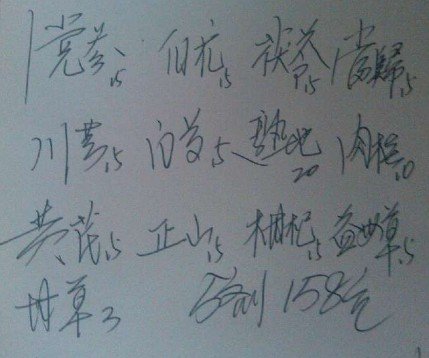 党参15 伯朮15 茯苓15 當歸15
川芎15 白芍15 熟地20 肉桂10
黄芪15 正山15 枸杞15 益母草15
甘草3 5剂 158元